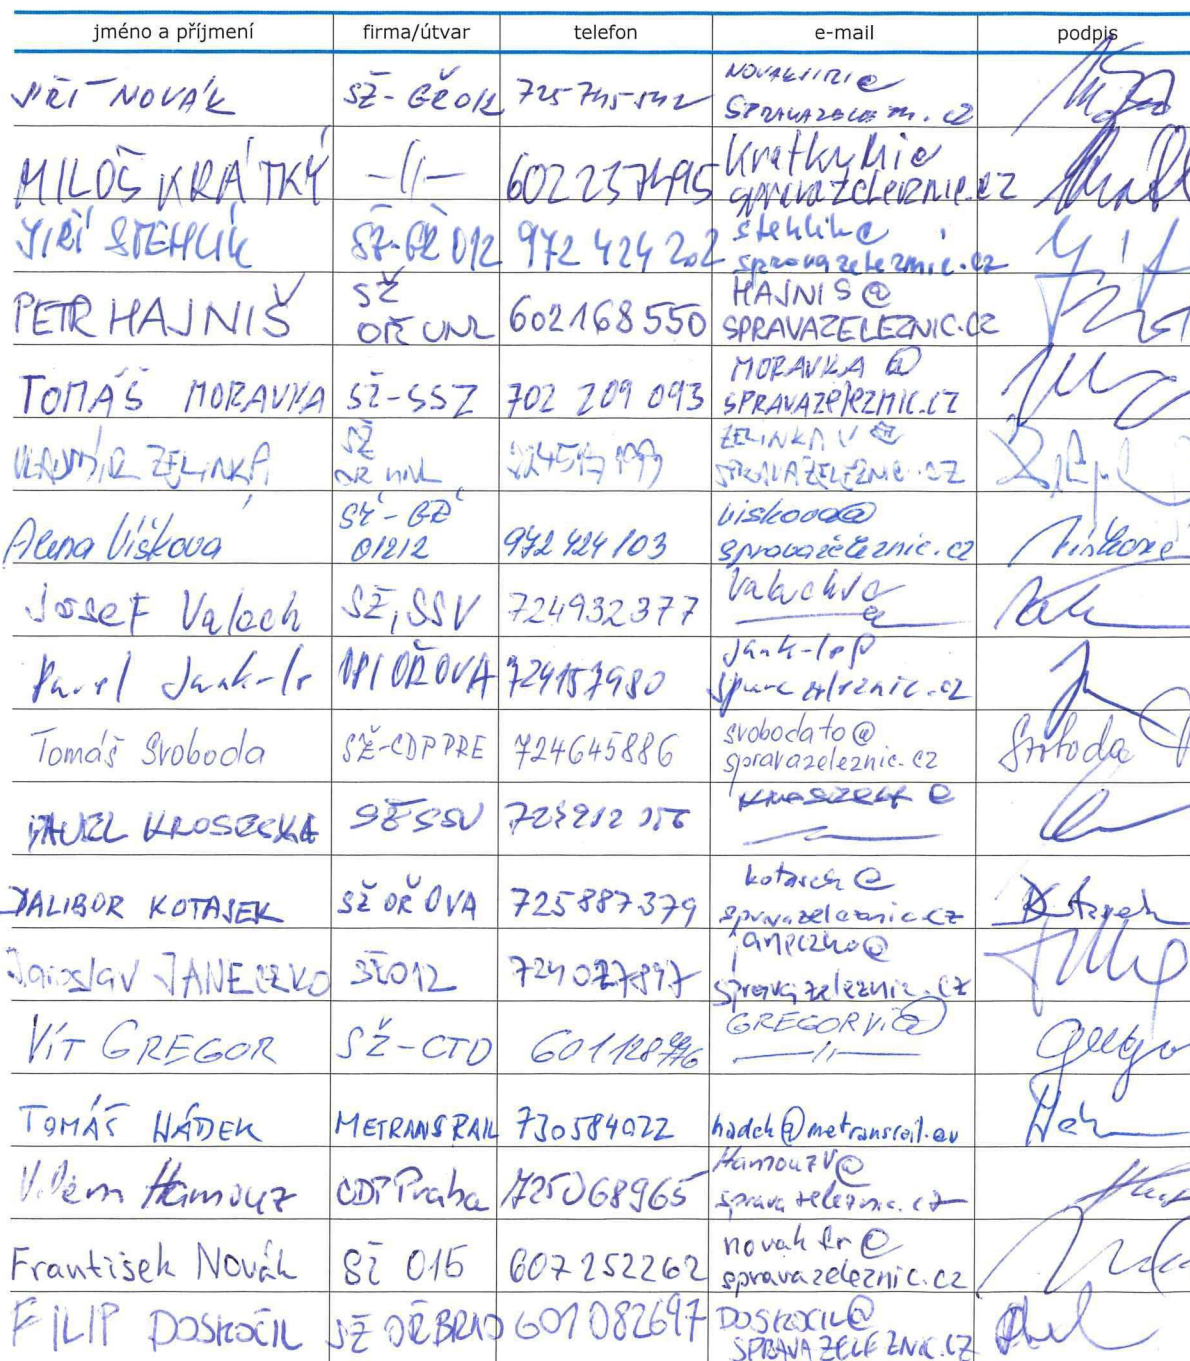 jméno a příjmení firma/útvar telefon e-mail podpis
JIŘÍ NOVÁK SŽ-GŘ012 725 745 542 NOVAKJIRI@
MILOŠ KRÁTKÝ -//- 602237495 KratkyMi@
spravazeleznic.cz
JIŘÍ STEHLÍK SŽ-GŘ 012 972 424 202 stehlik@
spravazeleznic.cz
PETR HAJNIŠ SŽ
OŘ UNL 602168550 HAJNIS@
SPRAVAZELEZNIC.CZ
TOMÁŠ MORAVKA SŽ-SSZ 702 209 093 MORAVKA@
SPRAVAZELEZNIC.CZ
VLADIMÍR ZELINKA SŽ
OŘ UNL ZELINKAV@
SPRAVAZELEZNIC.CZ
Alena Víšková SŽ-GŘ
01212 972 424 103 viskova@
spravazeleznic.cz Víšková
Josef Valach SŽ, SSV 724932377 Valach
Pavel 724157980
Tomáš Svoboda SŽ-CDP PRE 724645886 svobodato@
spravazeleznic.cz Svoboda
PAVEL SŽ SSV
DALIBOR KOTASEK SŽ OŘ OVA 725887379 kotasek@
spravazeleznic.cz
Jaroslav JANECZKO SŽ012 janeczko@
spravazeleznic.cz
VÍT GREGOR SŽ-CTD GREGORVI@
-//-
TOMÁŠ HÁDEK METRANS RAIL 730584022 hadek@metransrail.eu
Vilém Hamouz CDP Praha 725068965 HamouzV@
spravazeleznic.cz
František Novák SŽ 015 607252262 novakfr@
spravazeleznic.cz
FILIP DOSKOČIL SŽ OŘ BRNO 601082697 DOSKOCIL@
SPRAVAZELEZNIC.CZ